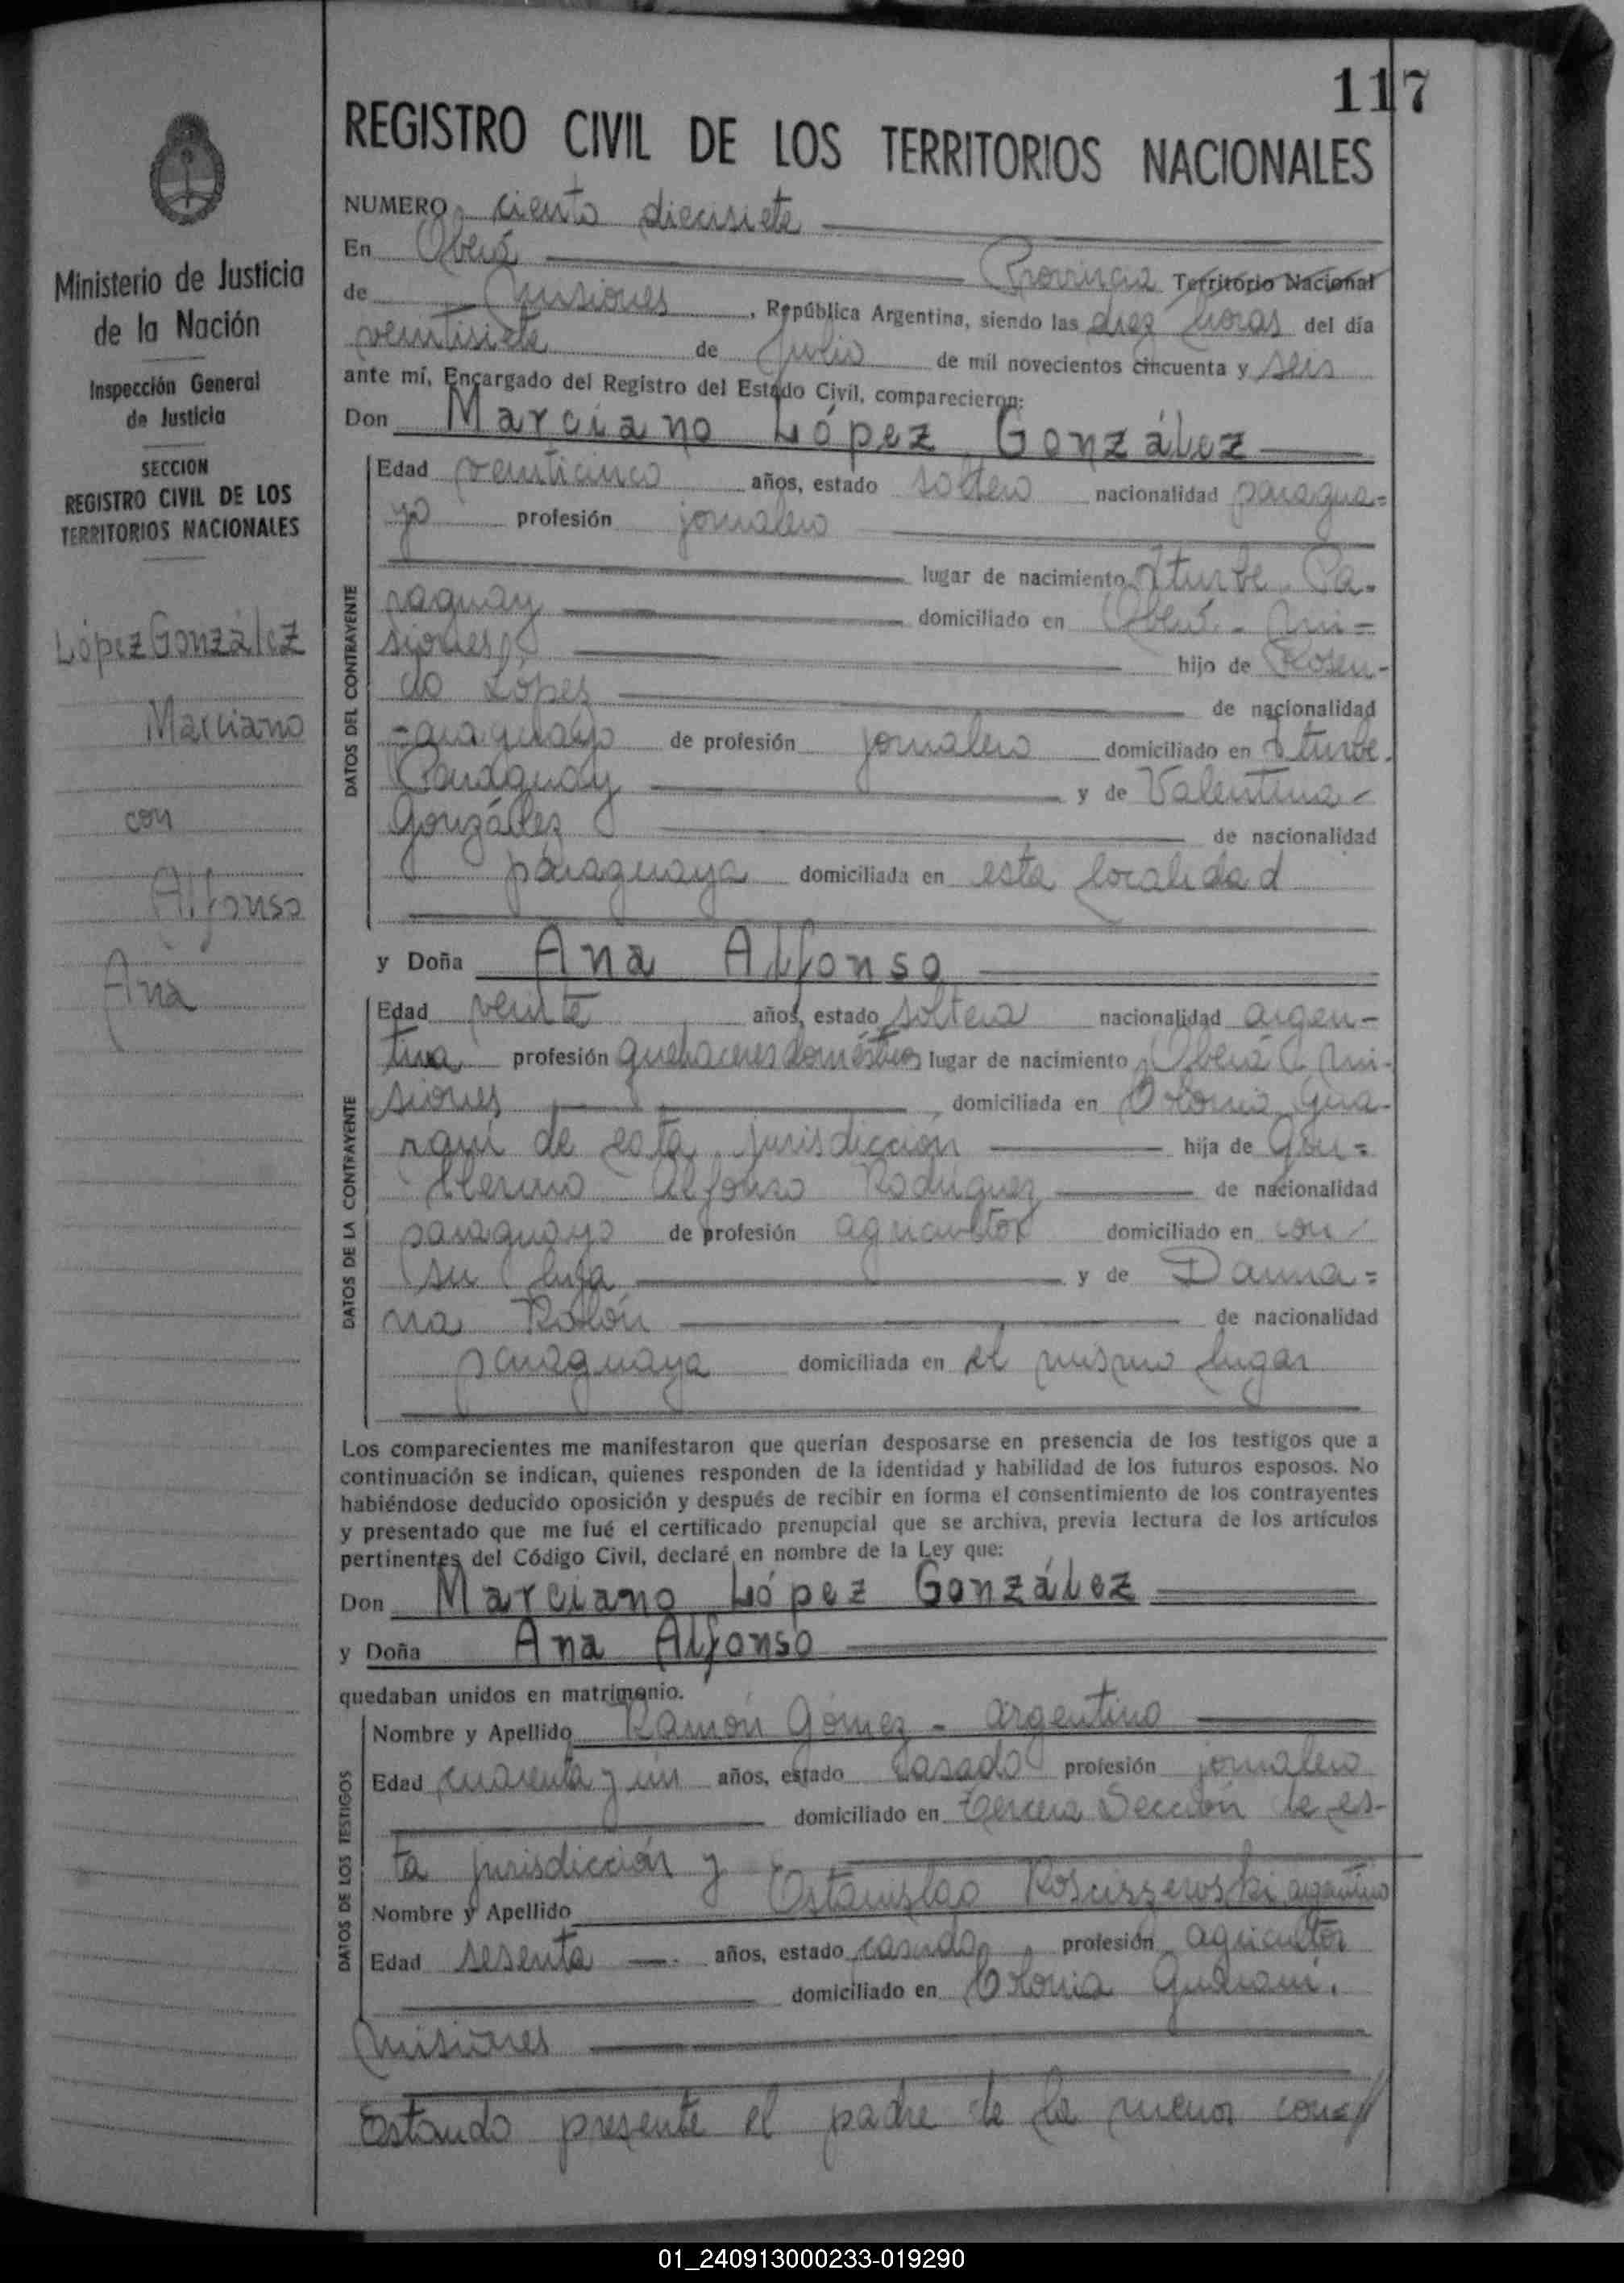 117
REGISTRO CIVIL DE LOS TERRITORIOS NACIONALES
NUMERO ciento diecisiete
En Oberá Provincia Territorio Nacional
de Misiones, República Argentina, siendo las diez horas del día
veintisiete de Julio de mil novecientos cincuenta y seis
ante mí, Encargado del Registro del Estado Civil, comparecieron:
Don Marciano López González
DATOS DEL CONTRAYENTE
Edad veinticinco años, estado soltero nacionalidad paragua=
yo profesión jornalero
lugar de nacimiento Iturbe. Pa-
raguay domiciliado en Oberá - Mi=
siones, hijo de Rosen-
do López de nacionalidad
paraguayo de profesión jornalero domiciliado en Iturbe.
Paraguay y de Valentina
González de nacionalidad
paraguaya domiciliada en esta localidad
y Doña Ana Alfonso
DATOS DE LA CONTRAYENTE
Edad veinte años, estado soltera nacionalidad argen-
tina profesión quehaceres domésticos lugar de nacimiento Oberá Mi-
siones domiciliada en Colonia Gua-
raní de esta jurisdicción hija de
Alfonso Rodríguez de nacionalidad
paraguayo de profesión agricultor domiciliado en con
su hija y de
na Rolón de nacionalidad
paraguaya domiciliada en el mismo lugar
Los comparecientes me manifestaron que querían desposarse en presencia de los testigos que a
continuación se indican, quienes responden de la identidad y habilidad de los futuros esposos. No
habiéndose deducido oposición y después de recibir en forma el consentimiento de los contrayentes
y presentado que me fué el certificado prenupcial que se archiva, previa lectura de los artículos
pertinentes del Código Civil, declaré en nombre de la Ley que:
Don Marciano López González
y Doña Ana Alfonso
quedaban unidos en matrimonio.
DATOS DE LOS TESTIGOS
Nombre y Apellido Ramón Gómez - argentino
Edad cuarenta y un años, estado casado profesión jornalero
domiciliado en tercera Sección de es-
ta jurisdicción y
Nombre y Apellido argentino
Edad sesenta años, estado casado, profesión agricultor
domiciliado en Colonia Guaraní.
Misiones
Estando presente el padre de la menor con=//
Ministerio de Justicia
de la Nación
Inspección General
de Justicia
SECCION
REGISTRO CIVIL DE LOS
TERRITORIOS NACIONALES
López González
Marciano
con
Alfonso
Ana
01_240913000233-019290